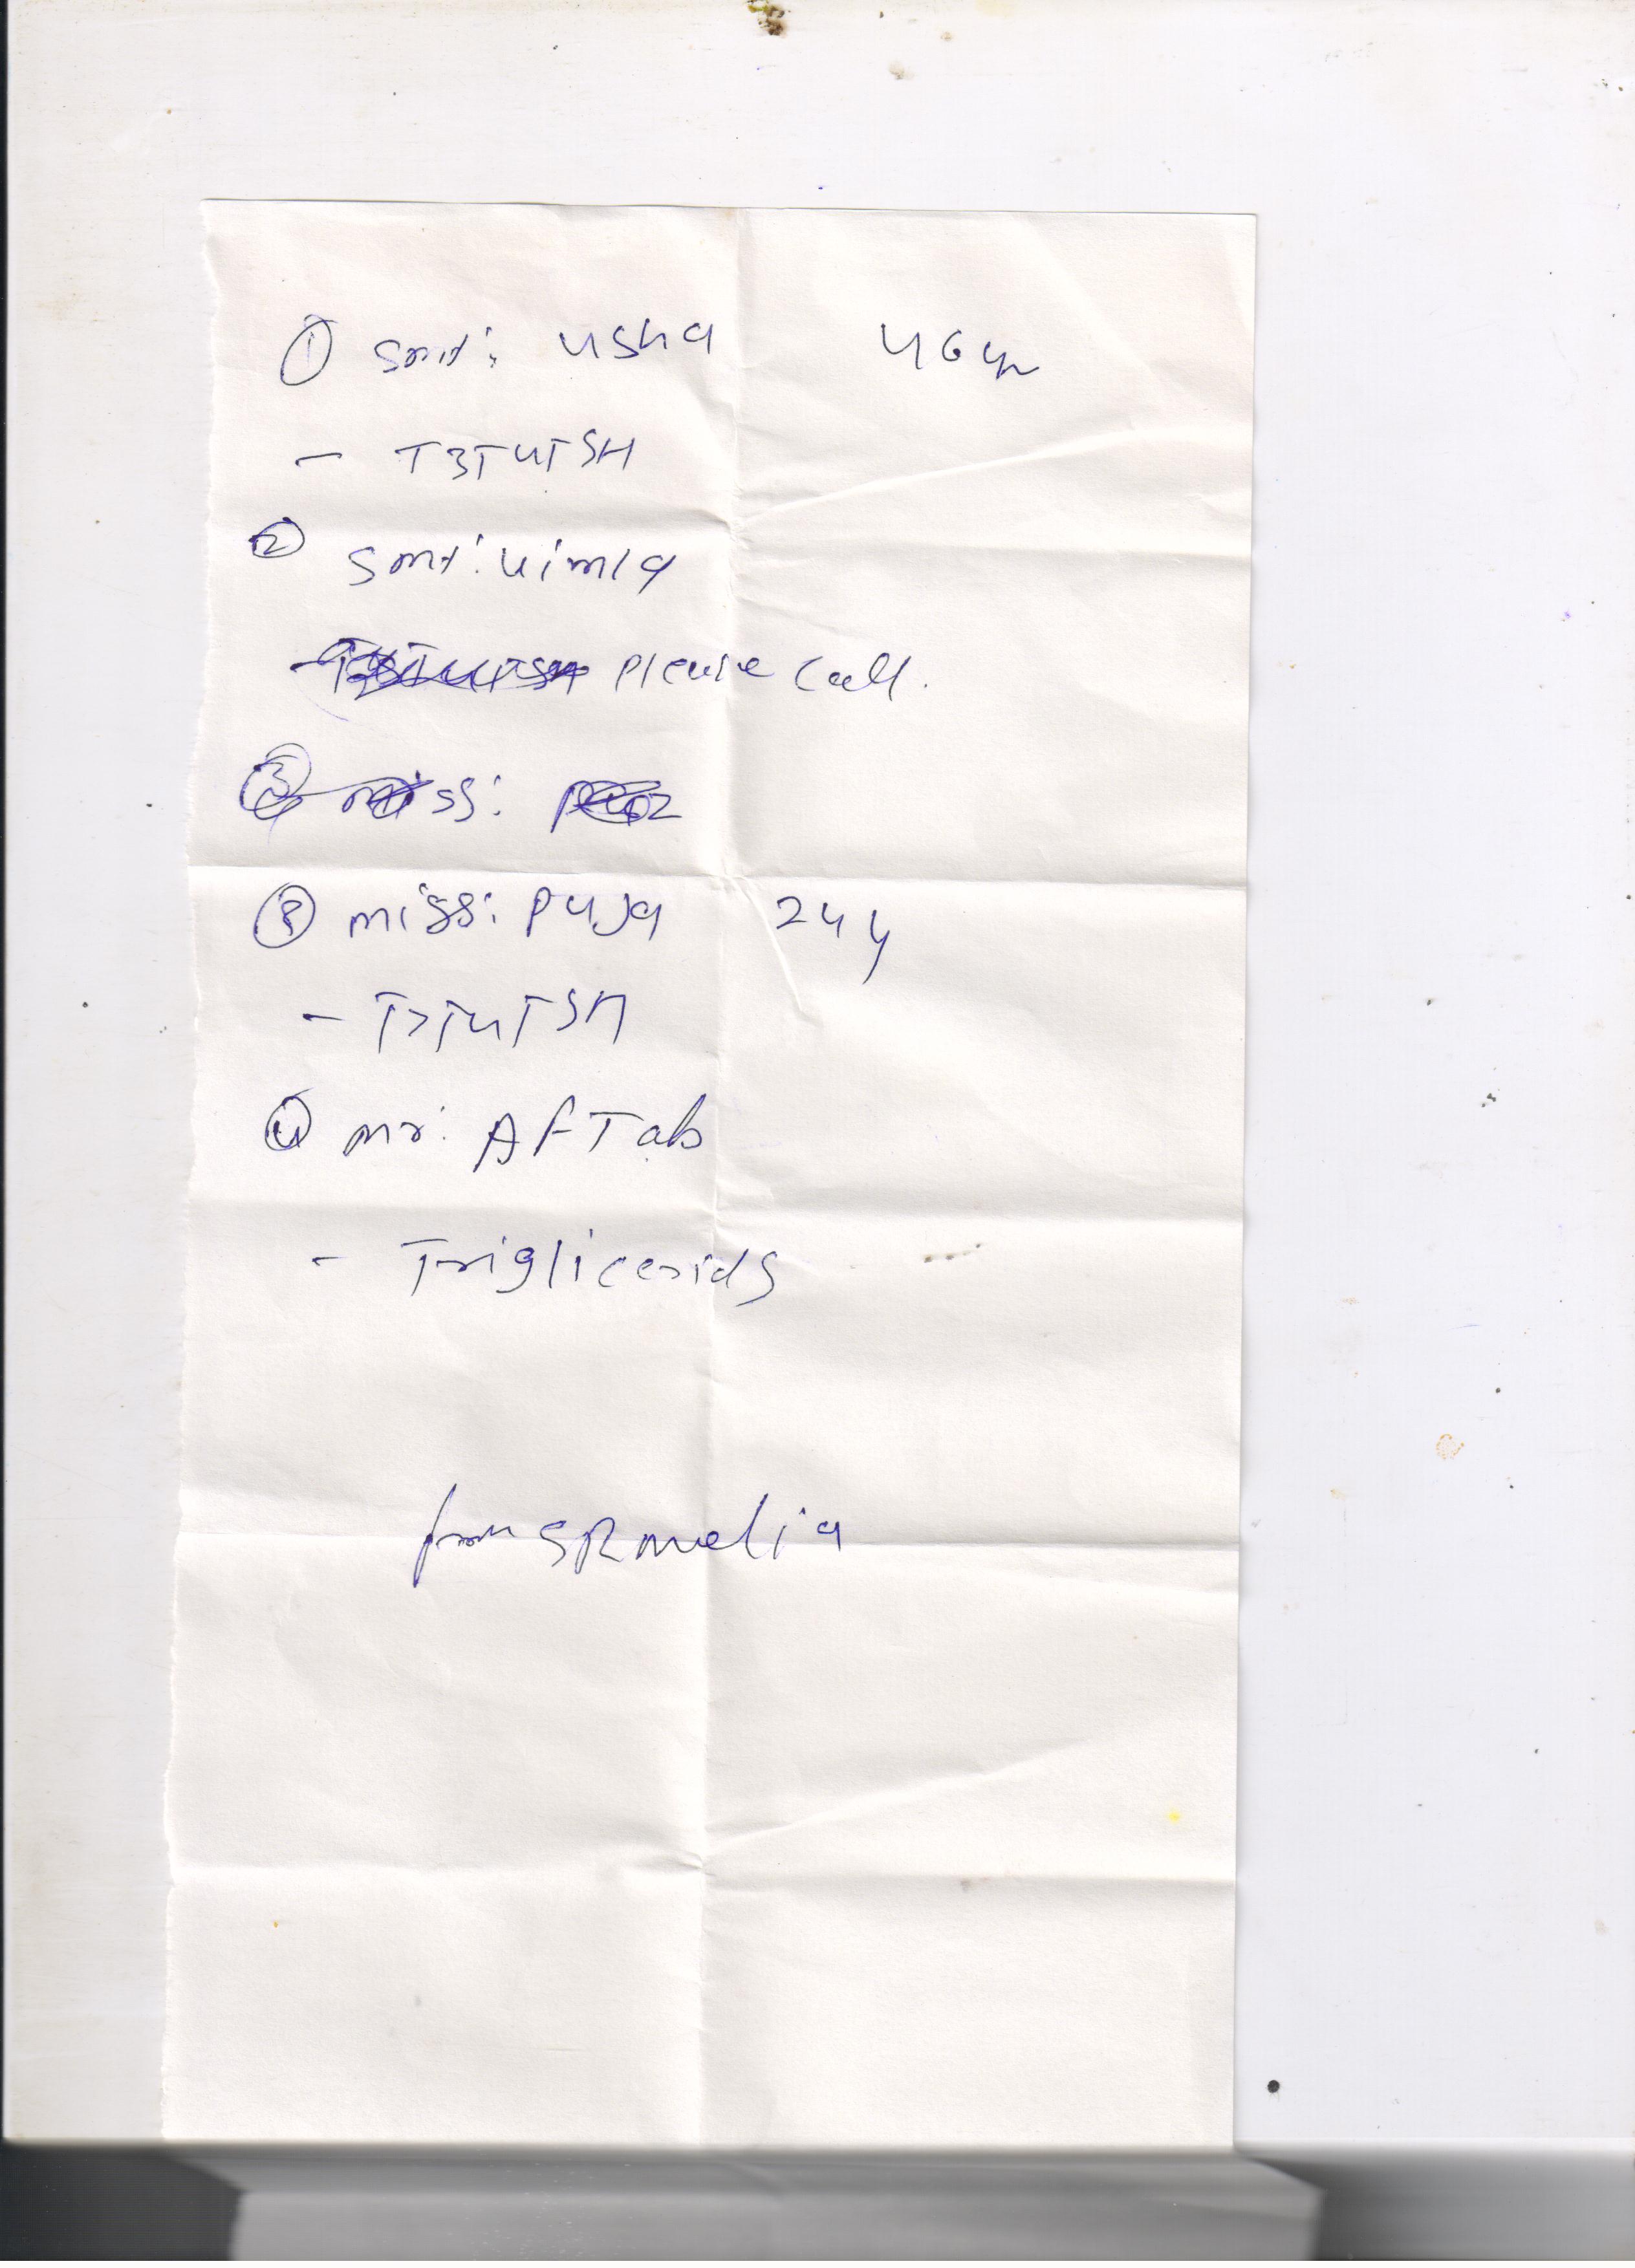 ① Smt: Usha 46 yr
- T3T4TSH
② Smt: Vimla
Please Call.
③ miss:
③ miss: Puja 24 y
- T3T4TSH
④ mr: AFTab
- Triglicerids
from SR